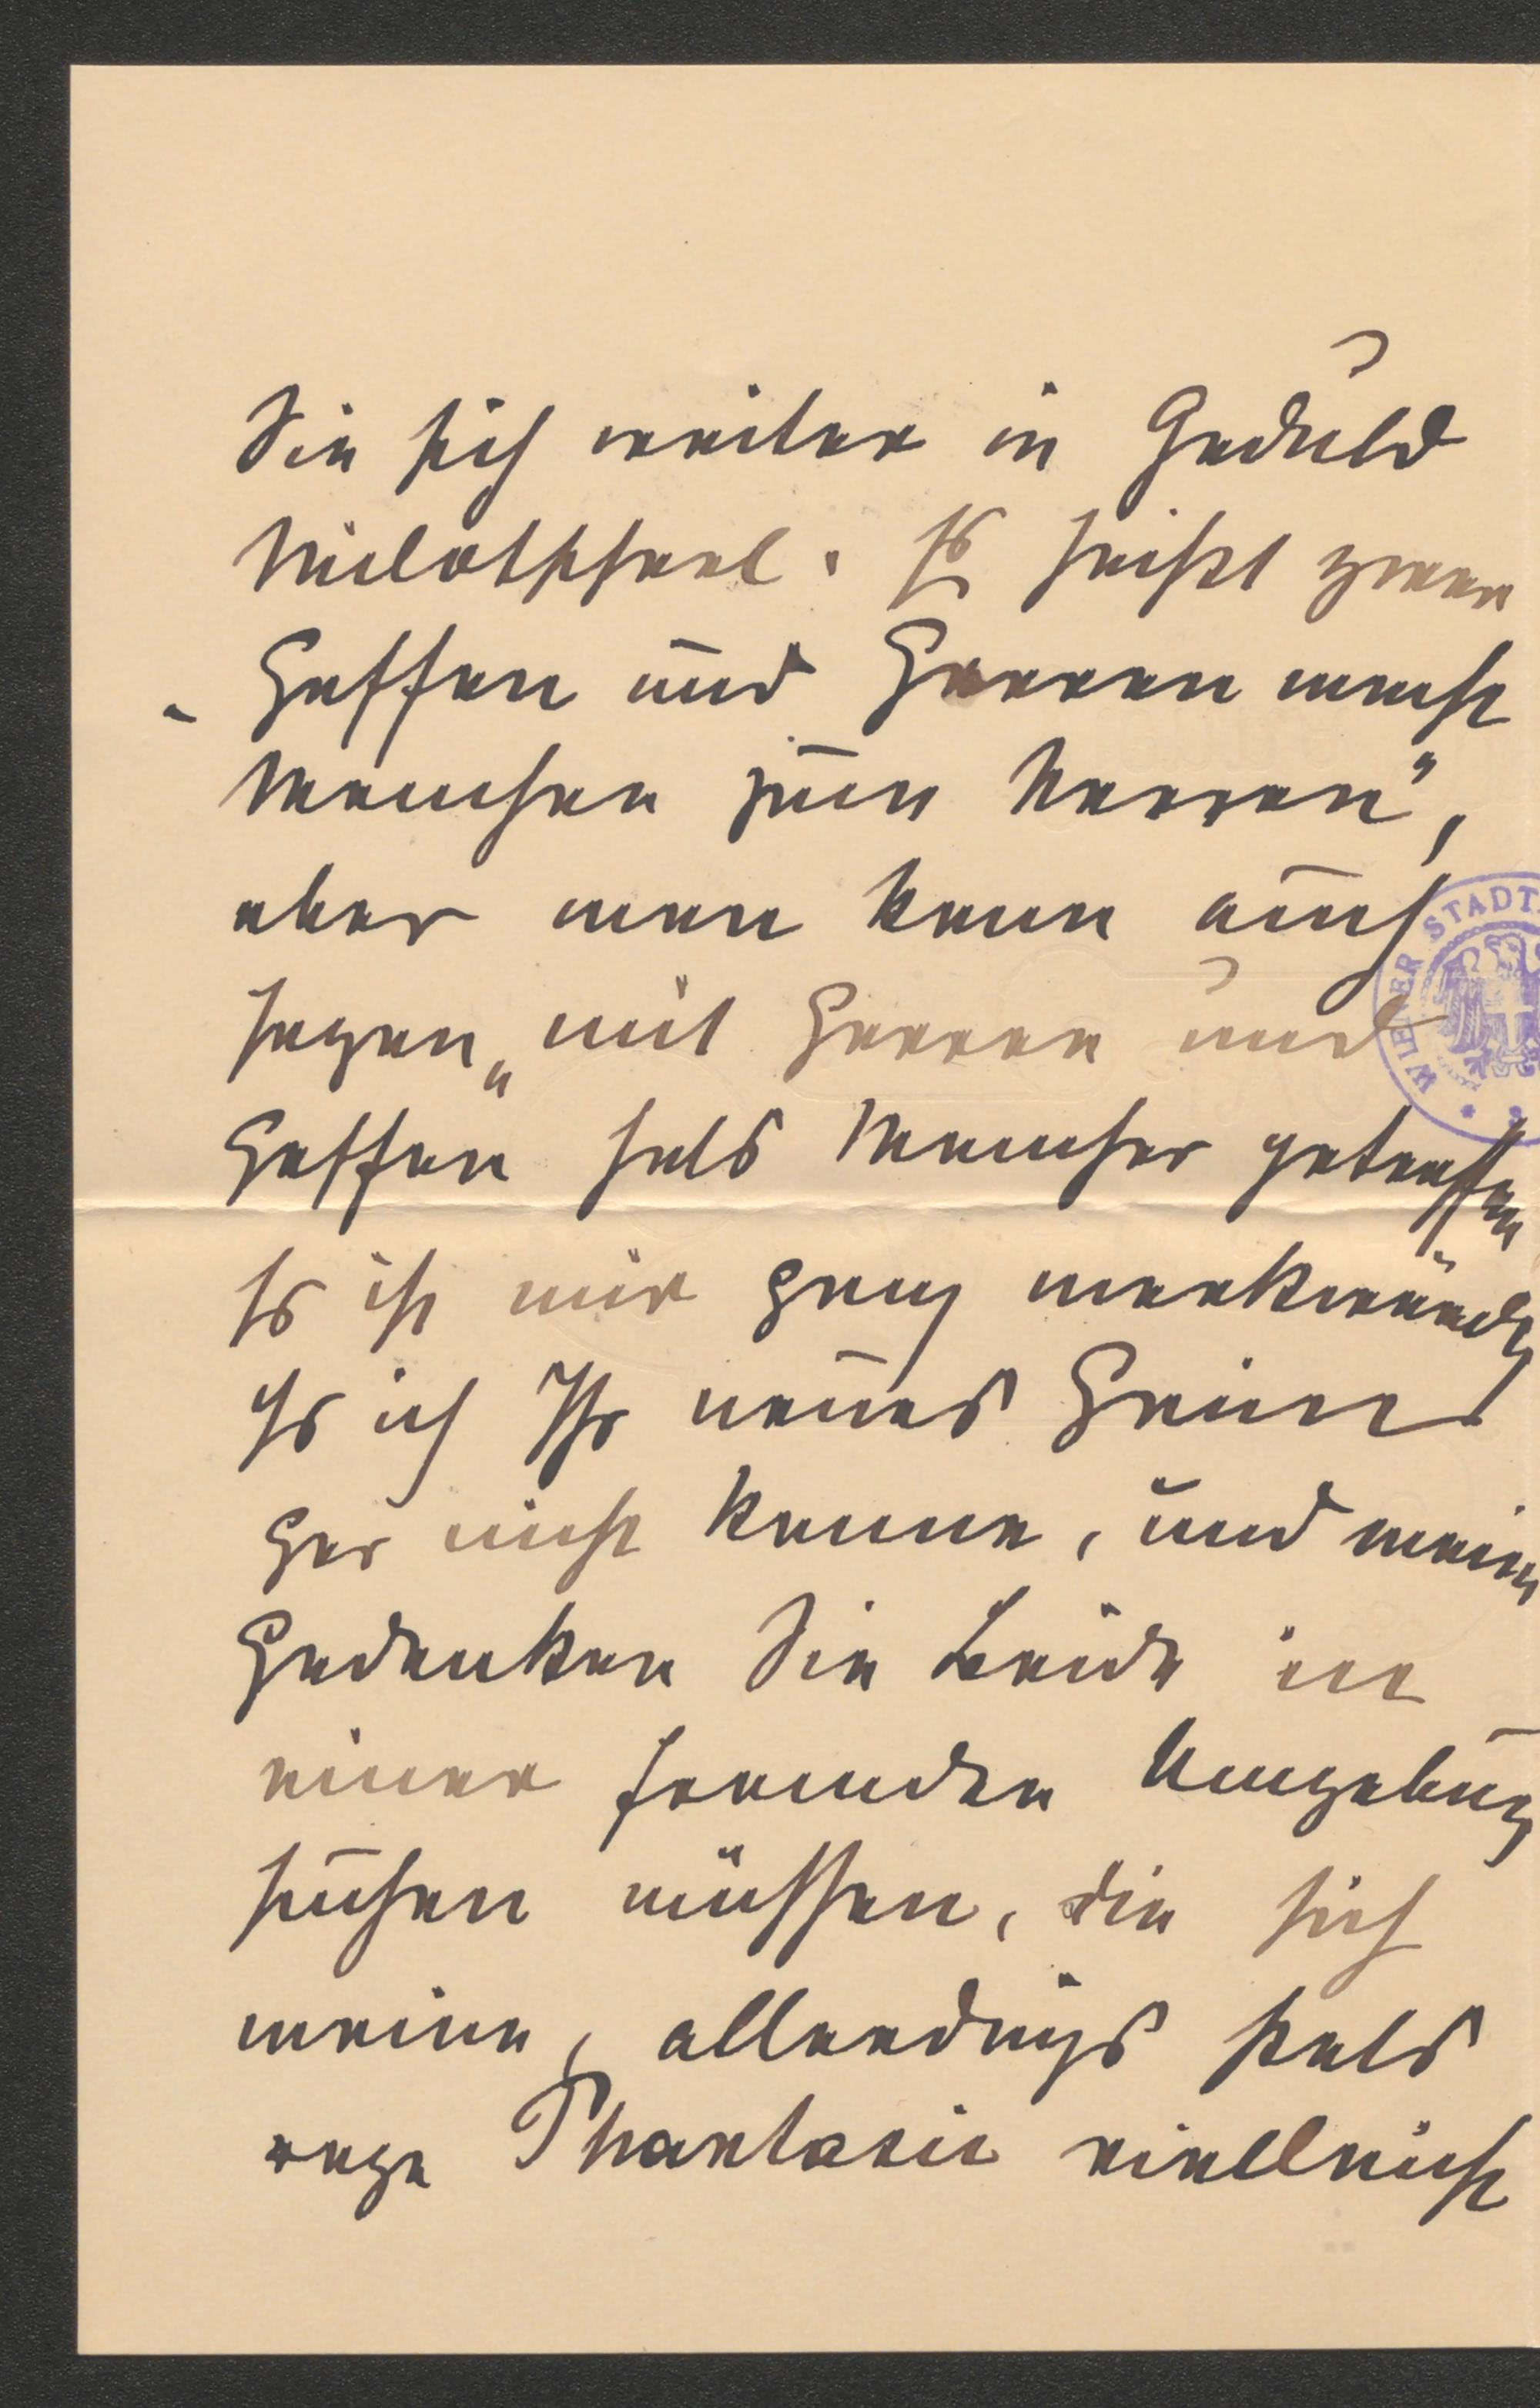 Sie sich weiter in Geduld
Es heißt zwar
„Hoffen und Harren macht
Manchen zum Narren",
aber man kann auch
sagen „mit Harren und
Hoffen hats Mancher getroffen
Es ist mir ganz merkwürdig
daß ich Ihr neues Heim
gar nicht kenne, und meine
Gedanken Sie Beide in
einer fremden Umgebung
suchen müssen, die sich
meine, allerdings stets
rege Phantasie vielleicht
WIENER STADT